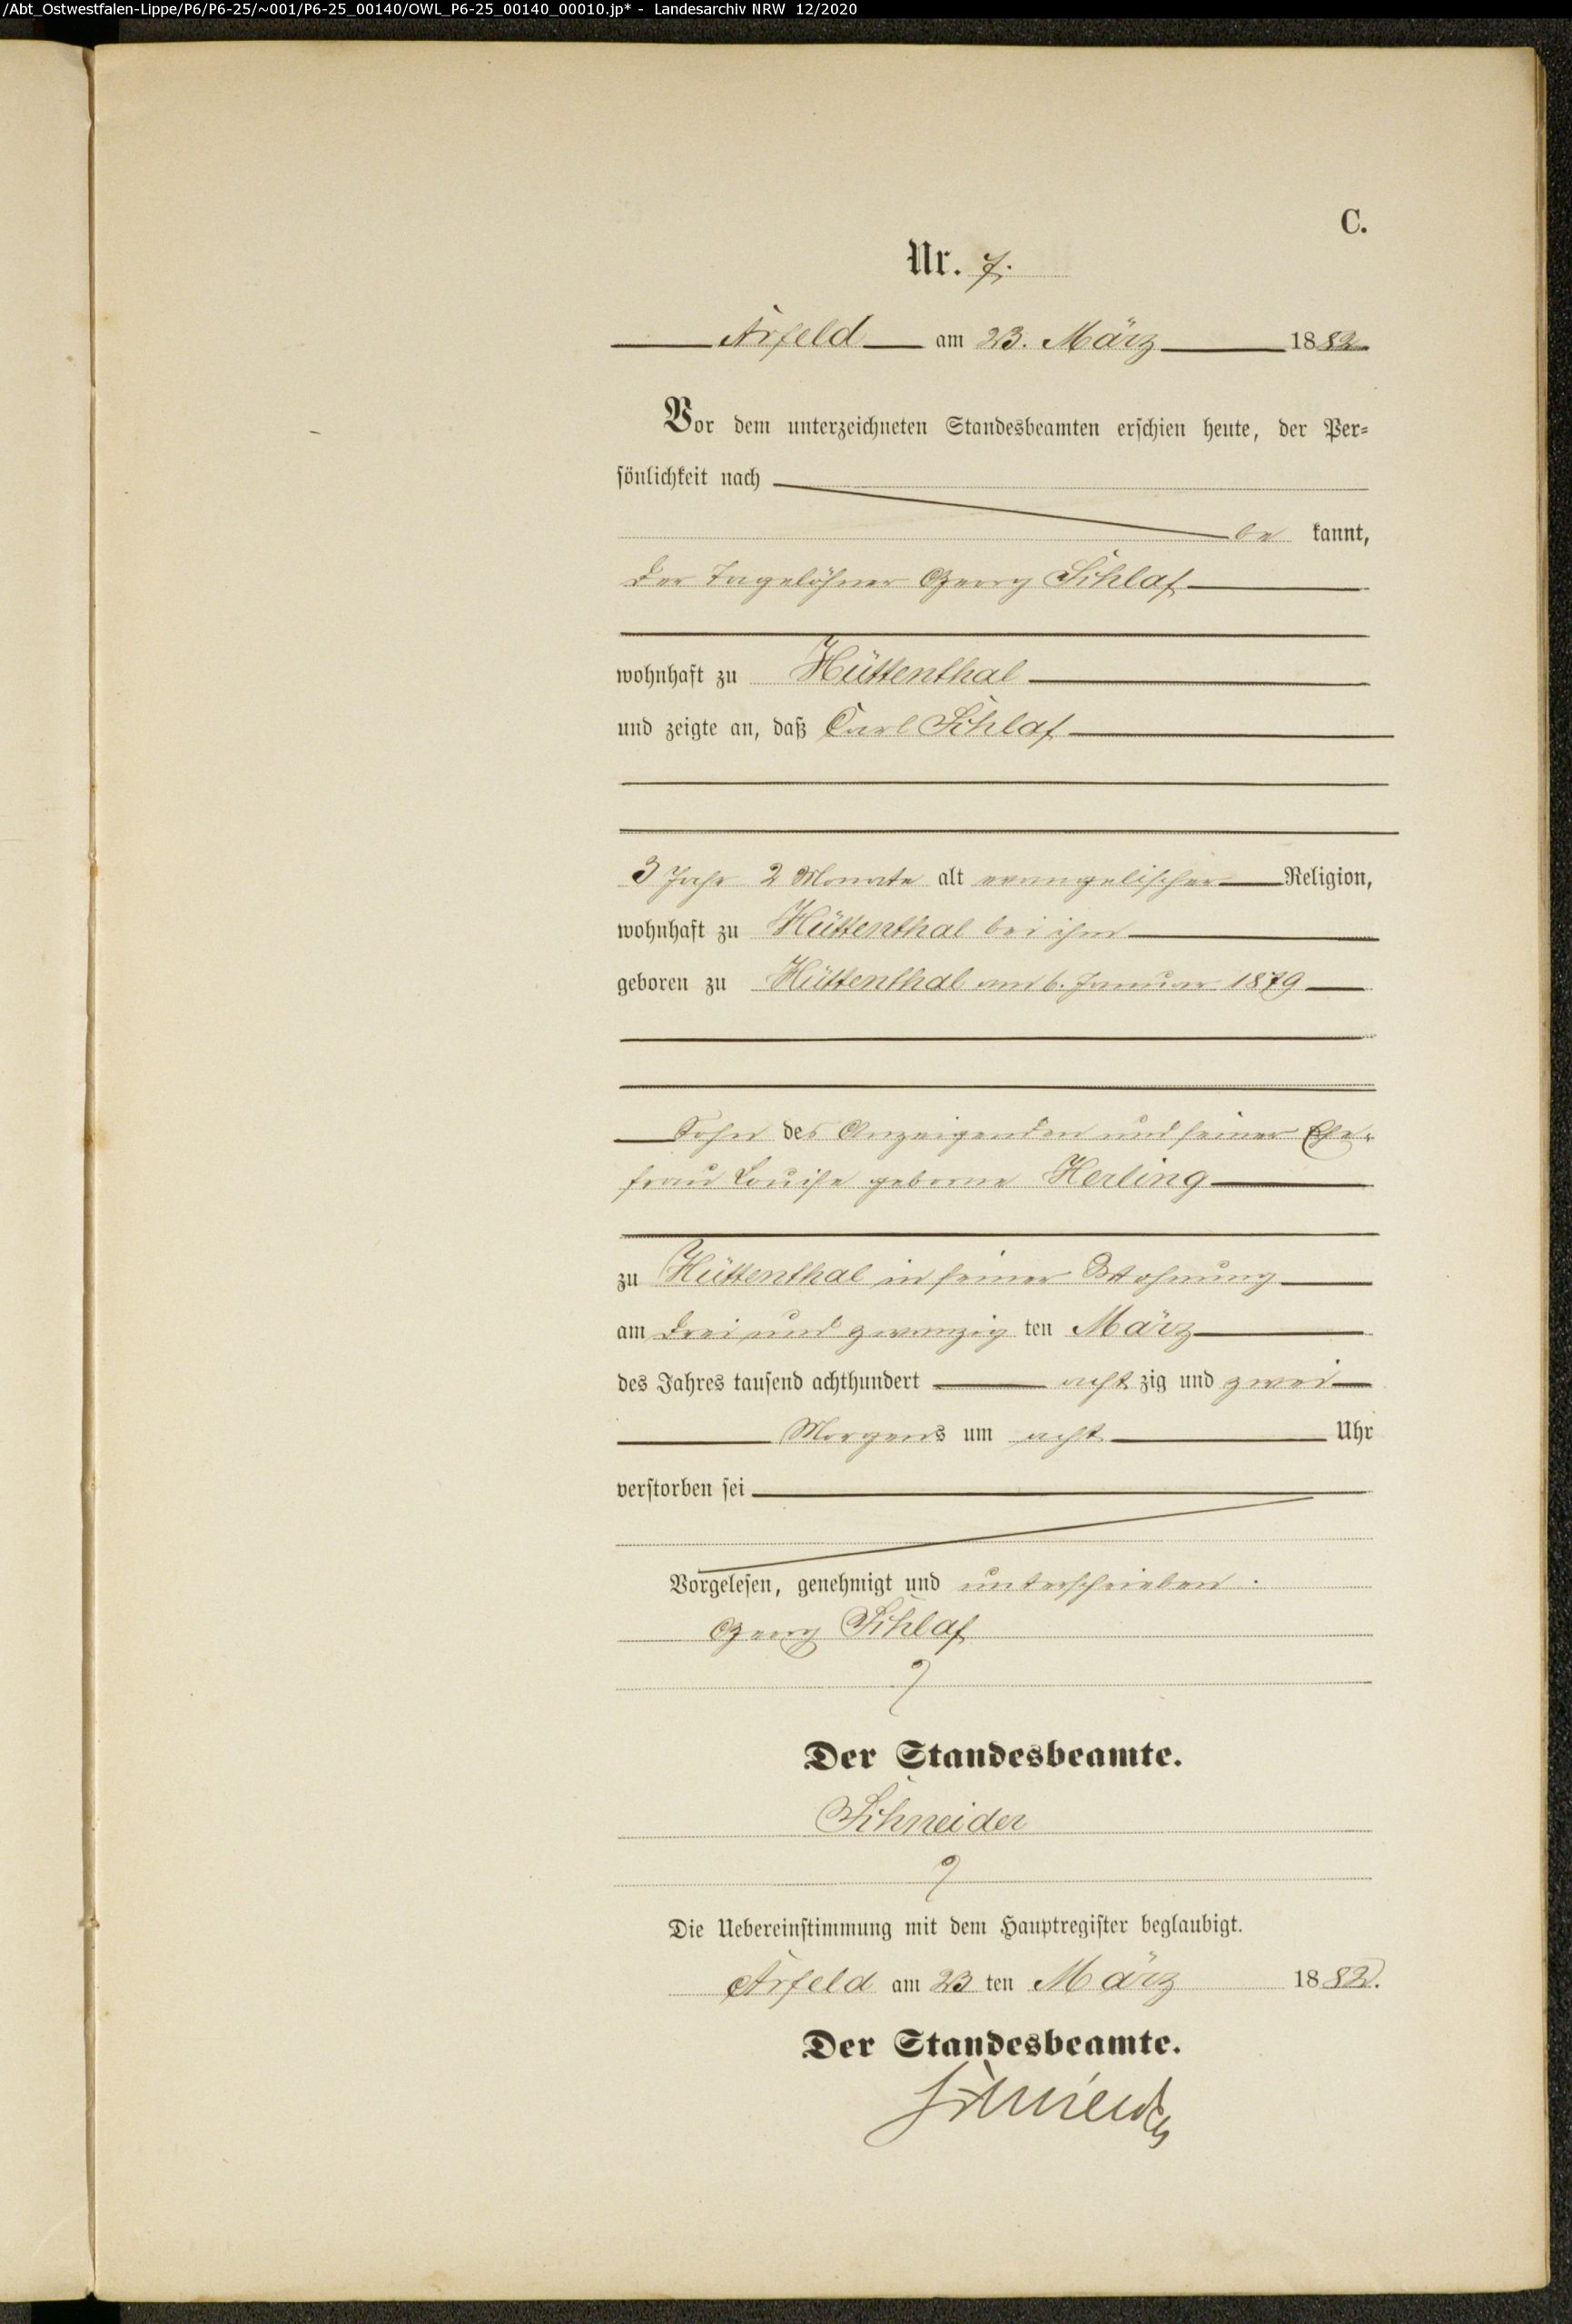 /Abt_Ostwestfalen-Lippe/P6/P6-25/~001/P6-25_00140/OWL_P6-25_00140_00010.jp* - Landesarchiv NRW 12/2020
C.
Nr. 7.
Arfeld am 23. März 1882
Vor dem unterzeichneten Standesbeamten erschien heute, der Per-
sönlichkeit nach
be kannt,
der Tagelöhner Georg Schlaf
wohnhaft zu Hüttenthal
und zeigte an, daß Carl Schlaf
3 Jahr 2 Monate alt evangelischer Religion,
wohnhaft zu Hüttenthal bei ihm
geboren zu Hüttenthal am 6. Januar 1879
Sohn des Anzeigenden und seiner Ehe-
frau Louise geborne Herling
zu Hüttenthal in seiner Wohnung
am drei und zwanzig ten März
des Jahres tausend achthundert acht zig und zwei
Morgens um acht Uhr
verstorben sei
Vorgelesen, genehmigt und unterschrieben.
Georg Schlaf
Der Standesbeamte.
Schneider
Die Uebereinstimmung mit dem Hauptregister beglaubigt.
Arfeld am 23 ten März 1882.
Der Standesbeamte.
Schneider